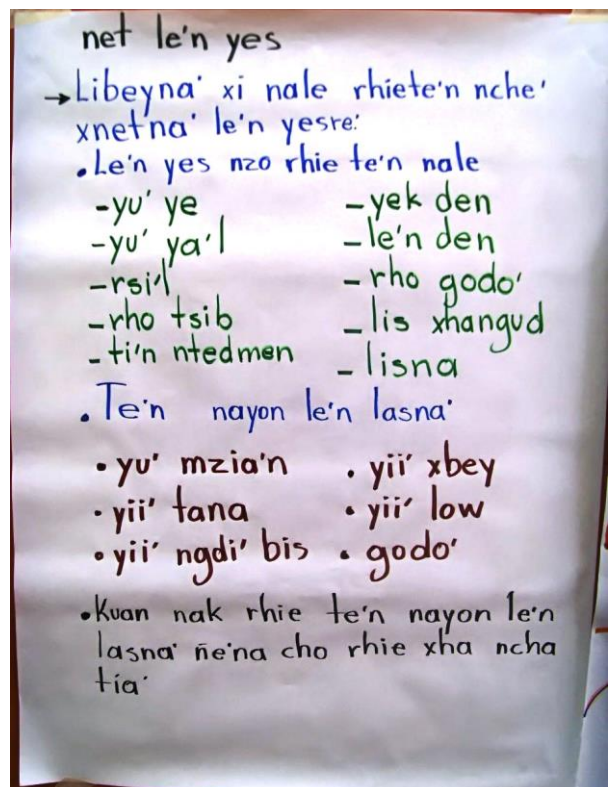 net le'n yes
→Libeyna' xi nale rhiete'n nche'
xnetna' le'n yesre:
•Le'n yes nzo rhie te'n nale
-yu' ye
-yu' ya'l
-rsi'l
-rho tsib
-ti'n ntedmen
-yek den
-le'n den
-rho godo'
-lis xhangud
-lisna
•Te'n nayon le'n lasna'
•yu' mzia'n
•yii' tana
•yii' ngdi' bis
•yii' xbey
•yii' low
•godo'
•Kuan nak rhie te'n nayon le'n
lasna' ñe'na cho rhie xha ncha
tia'